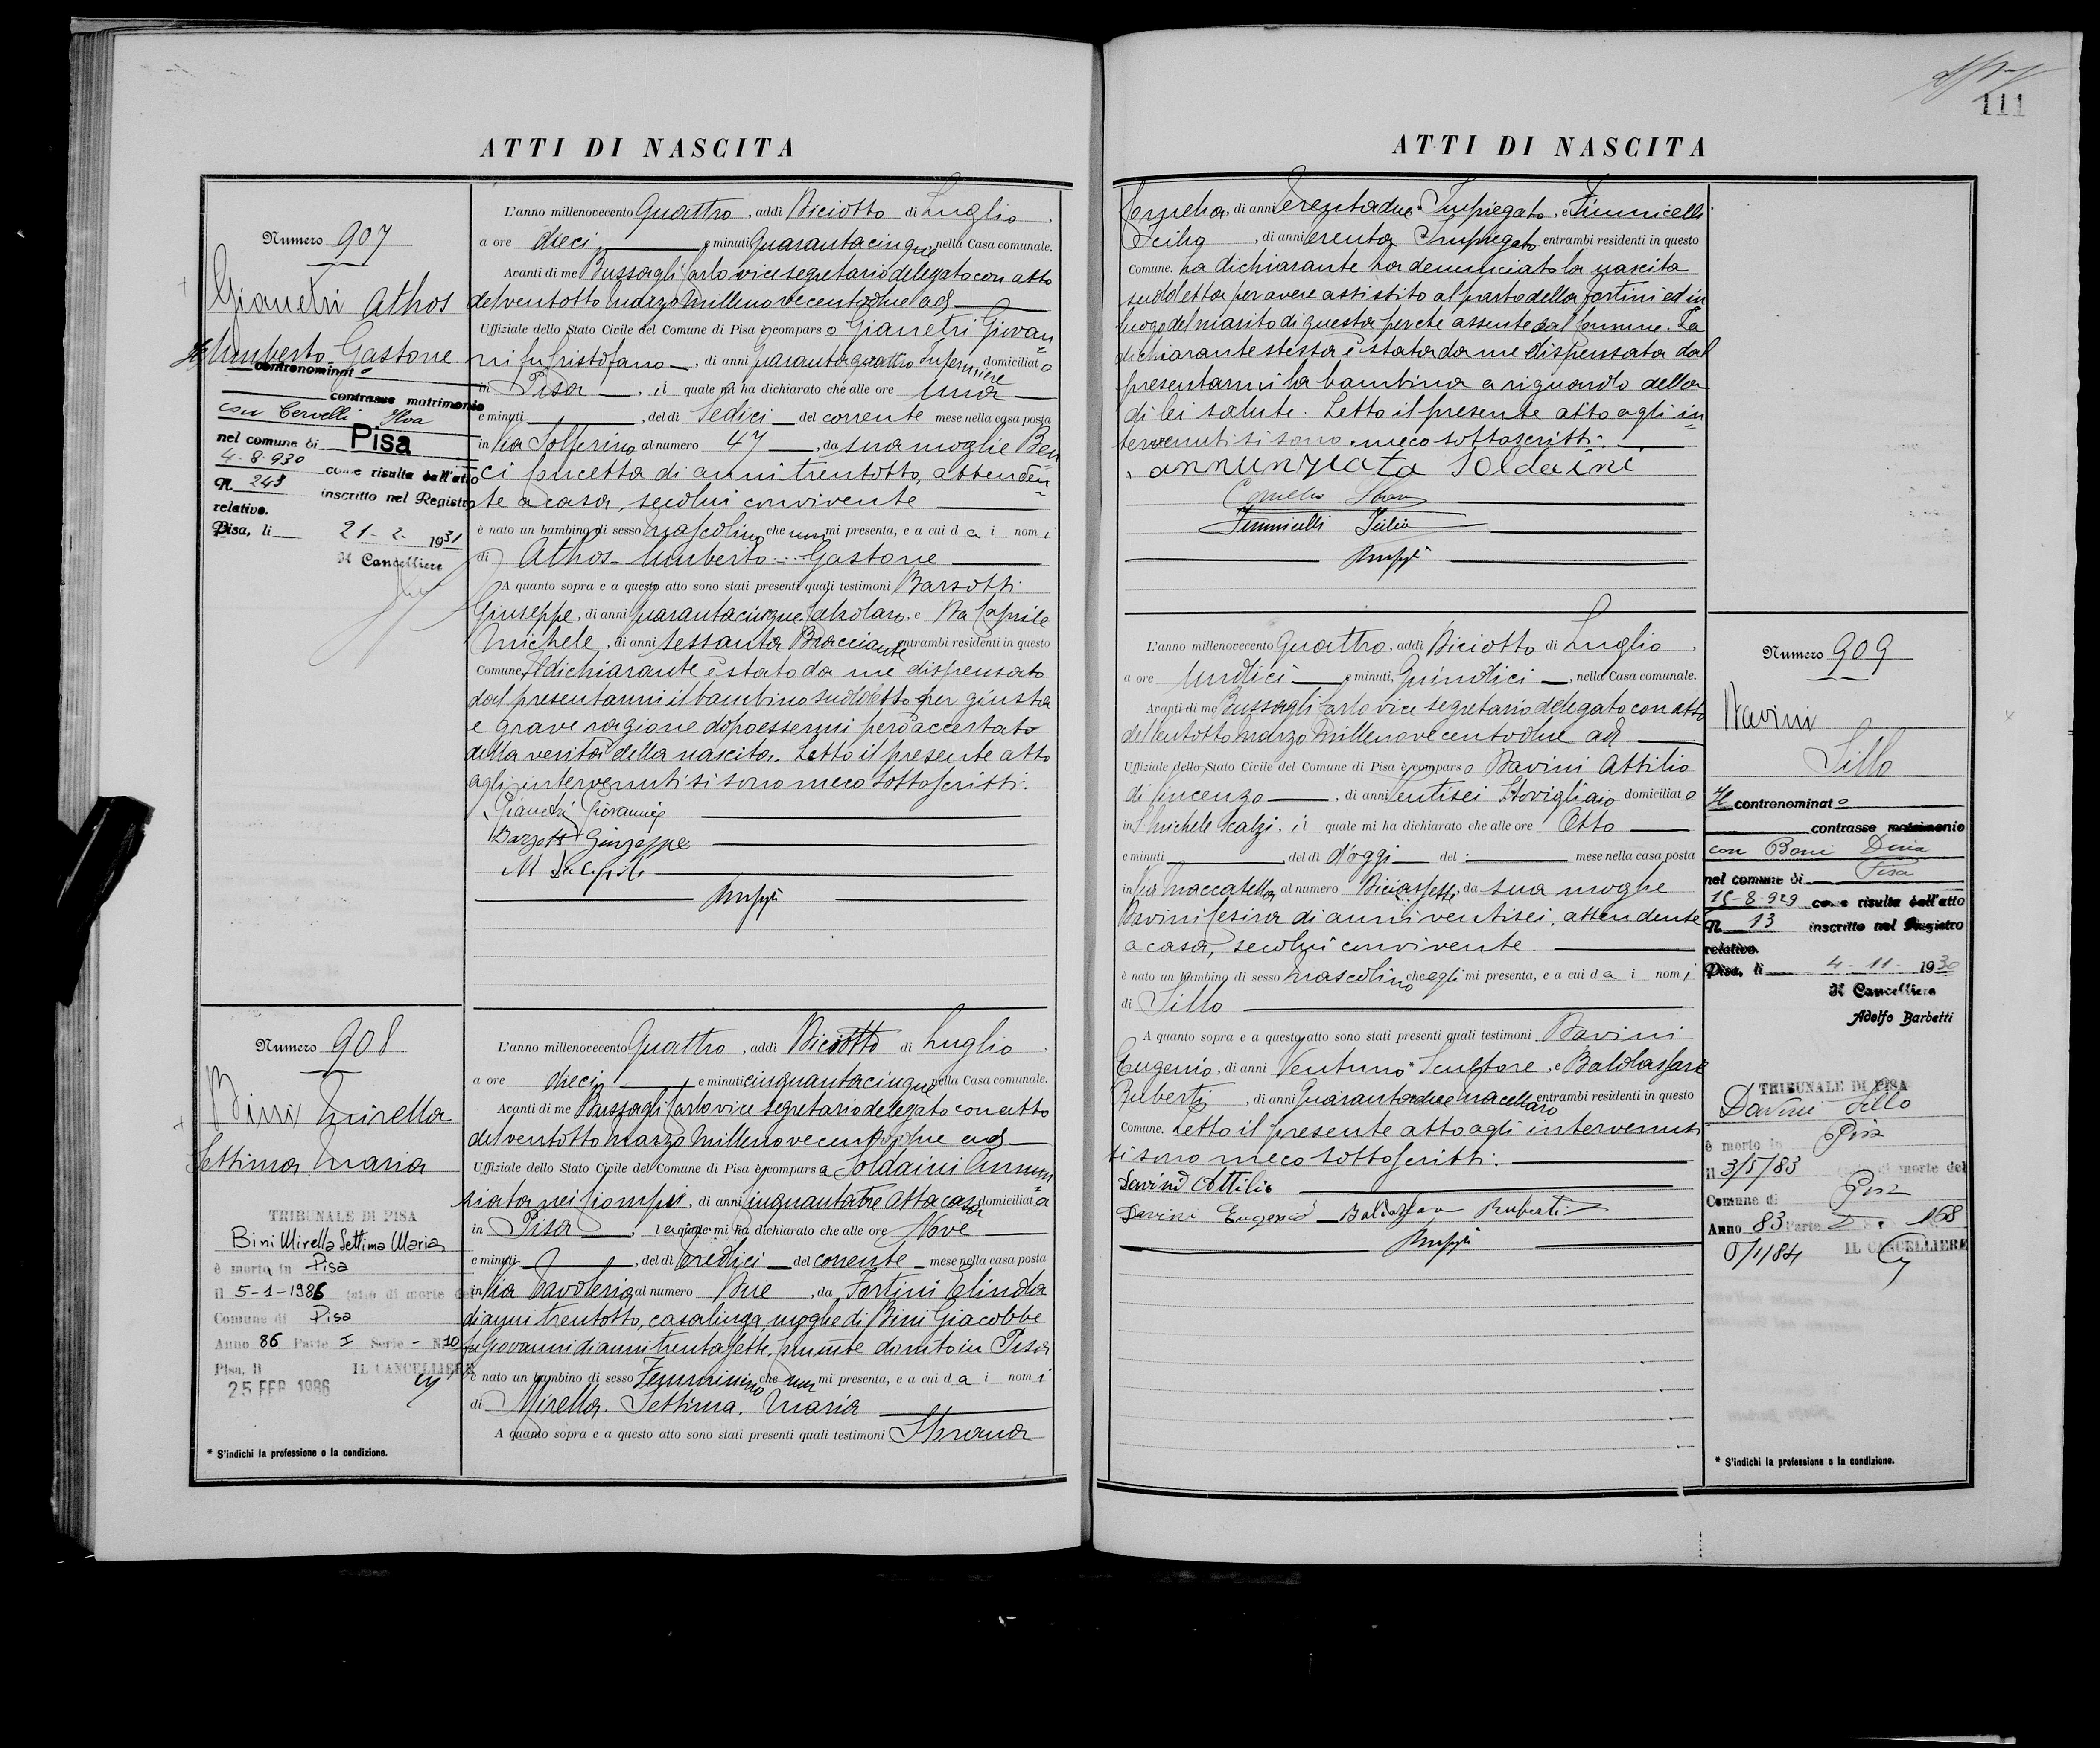 ATTI DI NASCITA
Numero 907
Gianetri Athos
Umberto Gastone
Il contronominato
contrasse matrimonio
con Cervelli Ilva
nel comune di Pisa
4-8-930 come risulta dall'atto
N 248 inscritto nel Registro
relativo.
Pisa, li 21-2-1931
Il Cancelliere
L'anno millenovecento Quattro, addì Diciotto di Luglio,
a ore dieci e minuti Quarantacinque, nella Casa comunale.
Avanti di me Bussagli Carlo vice segretario delegato con atto
del ventotto Marzo Millenovecentodue ad
Uffiziale dello Stato Civile del Comune di Pisa è comparso Gianetri Giovan=
ni fu Cristofano, di anni quarantaquattro Infermiere domiciliato
in Pisa, il quale mi ha dichiarato che alle ore Una
e minuti , del dì Sedici del corrente mese nella casa posta
in Via Solferino al numero 47, da sua moglie Ben=
ci Concetta di anni trentotto, attenden=
te a casa, secolui convivente
è nato un bambino di sesso Mascolino che non mi presenta, e a cui dà i nomi
di Athos=Umberto=Gastone
A quanto sopra e a questo atto sono stati presenti quali testimoni Barsotti
Giuseppe, di anni quarantacinque, Calzolaro, e Da Caprile
Michele, di anni Sessanta Bracciante entrambi residenti in questo
Comune. Il dichiarante è stato da me dispensato
dal presentarmi il bambino suddetto per giusta
e grave ragione dopo essermi però accertato
della verità della nascita. Letto il presente atto
agli intervenuti si sono meco sottoscritti.
Gianetri Giovanni
Barzotti Giuzeppe
Numero 908
Bini Mirella
Settima Maria
TRIBUNALE DI PISA
Bini Mirella Settima Maria
è morta in Pisa
il 5-1-1986 (atto di morte del
Comune di Pisa
Anno 86 Parte I Serie - N. 10
Pisa, li IL CANCELLIERE
25 FEB 1986
L'anno millenovecento Quattro, addì Diciotto di Luglio.
a ore dieci e minuti cinquantacinque nella Casa comunale.
Avanti di me Bussagli Carlo vice segretario delegato con atto
del ventotto Marzo Millenovecentodue ad
Uffiziale dello Stato Civile del Comune di Pisa è comparsa Soldaini Annun=
ziata nei Ciompi, di anni Cinquantatre Atta casa domiciliata
in Pisa, la quale mi ha dichiarato che alle ore Nove
e minuti , del dì Tredici del corrente mese nella casa posta
in Via Tavoleria al numero Due, da Fortini Elinda
di anni trentotto, casalinga, moglie di Bini Giacobbe
fu Giovanni di anni trentasette, domto in Pisa
è nato un bambino di sesso Femminino che non mi presenta, e a cui dà i nomi
di Mirella. Settima. Maria
A quanto sopra e a questo atto sono stati presenti quali testimoni Sbrana
* S'indichi la professione o la condizione.
111
ATTI DI NASCITA
Cornelio, di anni Trentadue Impiegato, e Timmicelli
Tulio, di anni Trenta Impiegato entrambi residenti in questo
Comune. La dichiarante ha denunciato la nascita
suddetta per avere assistito al parto della Fortini ed in
luogo del marito di questa perché assente dal Comune. La
dichiarante stessa è stata da me dispensata dal
presentarmi la bambina a riguardo della
di lei salute. Letto il presente atto agli in=
tervenuti si sono meco sottoscritti.
annunziata Soldaini
Cornelio Sbrana
L'anno millenovecento Quattro, addì Diciotto di Luglio,
a ore Undici e minuti Quindici, nella Casa comunale.
Avanti di me Bussagli Carlo vice segretario delegato con atto
del ventotto Marzo Millenovecentodue ad
Uffiziale dello Stato Civile del Comune di Pisa è comparso Davini Attilio
di Vincenzo, di anni Ventisei Stovigliaio domiciliato
in S Michele Scalzi, il quale mi ha dichiarato che alle ore Otto
e minuti , del dì d'oggi del mese nella casa posta
in Via Maccatella al numero Diciassette, da sua moglie
Davini Cesira di anni ventisei, attendente
a casa, secolui convivente
è nato un bambino di sesso Mascolino che egli mi presenta, e a cui dà i nomi
di Lillo
A quanto sopra e a questo atto sono stati presenti quali testimoni Davini
Eugenio, di anni Ventuno Scultore, e Baldassari
Ruberti, di anni Quarantadue Macellaro entrambi residenti in questo
Comune. Letto il presente atto agli intervenuti
si sono meco sottoscritti.
Davini Attilio
Davini Eugenio Baldassari Ruberti
Numero 909
Davini
Lillo
Il contronominato
contrasse matrimonio
con Boni Dina
nel comune di Pisa
15-8-929 come risulta dall'atto
N 13 inscritto nel Registro
relativo.
Pisa, li 4-11-1930
Il Cancelliere
Adolfo Barbetti
TRIBUNALE DI PISA
Davini Lillo
è morto in Pisa
il 3/5/83 di morte del
Comune di Pisa
Anno 83 Parte I 168
IL CANCELLIERE
* S'indichi la professione o la condizione.